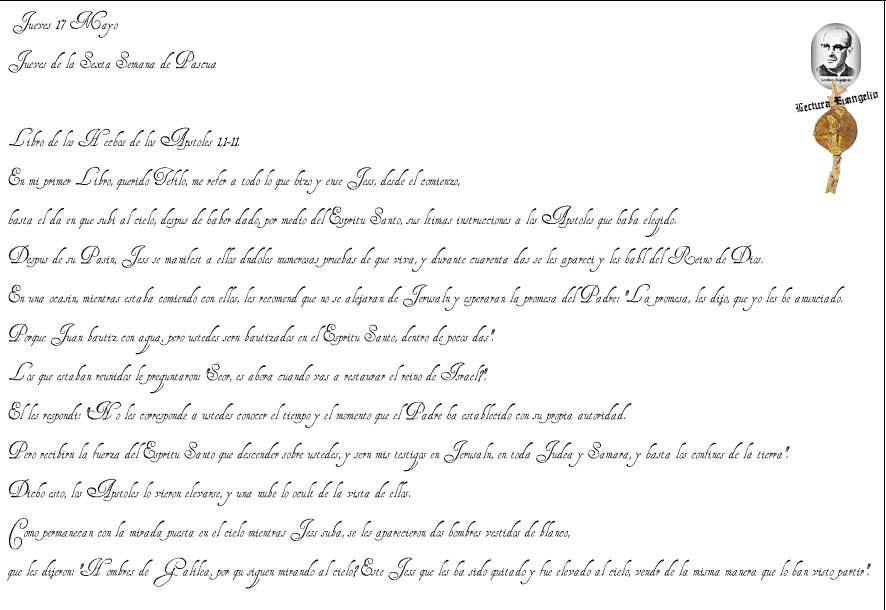 Jueves 17 Mayo
Jueves de la Sexta Semana de Pascua
Lectura Evangelio
Libro de los Hechos de los Apstoles 1,1-11.
En mi primer Libro, querido Tefilo, me refer a todo lo que hizo y ense Jess, desde el comienzo,
hasta el da en que subi al cielo, despus de haber dado, por medio del Espritu Santo, sus ltimas instrucciones a los Apstoles que haba elegido.
Despus de su Pasin, Jess se manifest a ellos dndoles numerosas pruebas de que viva, y durante cuarenta das se les apareci y les habl del Reino de Dios.
En una ocasin, mientras estaba comiendo con ellos, les recomend que no se alejaran de Jerusaln y esperaran la promesa del Padre: "La promesa, les dijo, que yo les he anunciado.
Porque Juan bautiz con agua, pero ustedes sern bautizados en el Espritu Santo, dentro de pocos das".
Los que estaban reunidos le preguntaron: "Seor, es ahora cuando vas a restaurar el reino de Israel?".
El les respondi: "No les corresponde a ustedes conocer el tiempo y el momento que el Padre ha establecido con su propia autoridad.
Pero recibirn la fuerza del Espritu Santo que descender sobre ustedes, y sern mis testigos en Jerusaln, en toda Judea y Samara, y hasta los confines de la tierra".
Dicho esto, los Apstoles lo vieron elevarse, y una nube lo ocult de la vista de ellos.
Como permanecan con la mirada puesta en el cielo mientras Jess suba, se les aparecieron dos hombres vestidos de blanco,
que les dijeron: "Hombres de Galilea, por qu siguen mirando al cielo? Este Jess que les ha sido quitado y fue elevado al cielo, vendr de la misma manera que lo han visto partir".